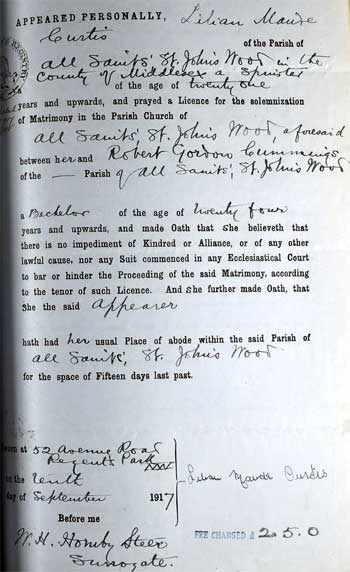 APPEARED PERSONALLY, Lilian Maude
Curtis of the Parish of
All Saints', St. John's Wood in the
County of Middlesex a Spinster
of the age of twenty one
years and upwards, and prayed a Licence for the solemnization
of Matrimony in the Parish Church of
All Saints', St. John's Wood, aforesaid
between her and Robert Gordon Cummings
of the — Parish of All Saints', St. John's Wood
a Bachelor of the age of twenty four
years and upwards, and made Oath that She believeth that
there is no impediment of Kindred or Alliance, or of any other
lawful cause, nor any Suit commenced in any Ecclesiastical Court
to bar or hinder the Proceeding of the said Matrimony, according
to the tenor of such Licence. And She further made Oath, that
She the said Appearer
hath had her usual Place of abode within the said Parish of
All Saints', St. John's Wood
for the space of Fifteen days last past.
worn at 52 Avenue Road
Regent's Park NW
on the tenth
day of September 1917
Lilian Maude Curtis
Before me
W. H. Hornby Steer
Surrogate.
FEE CHARGED £ 2. 5. 0